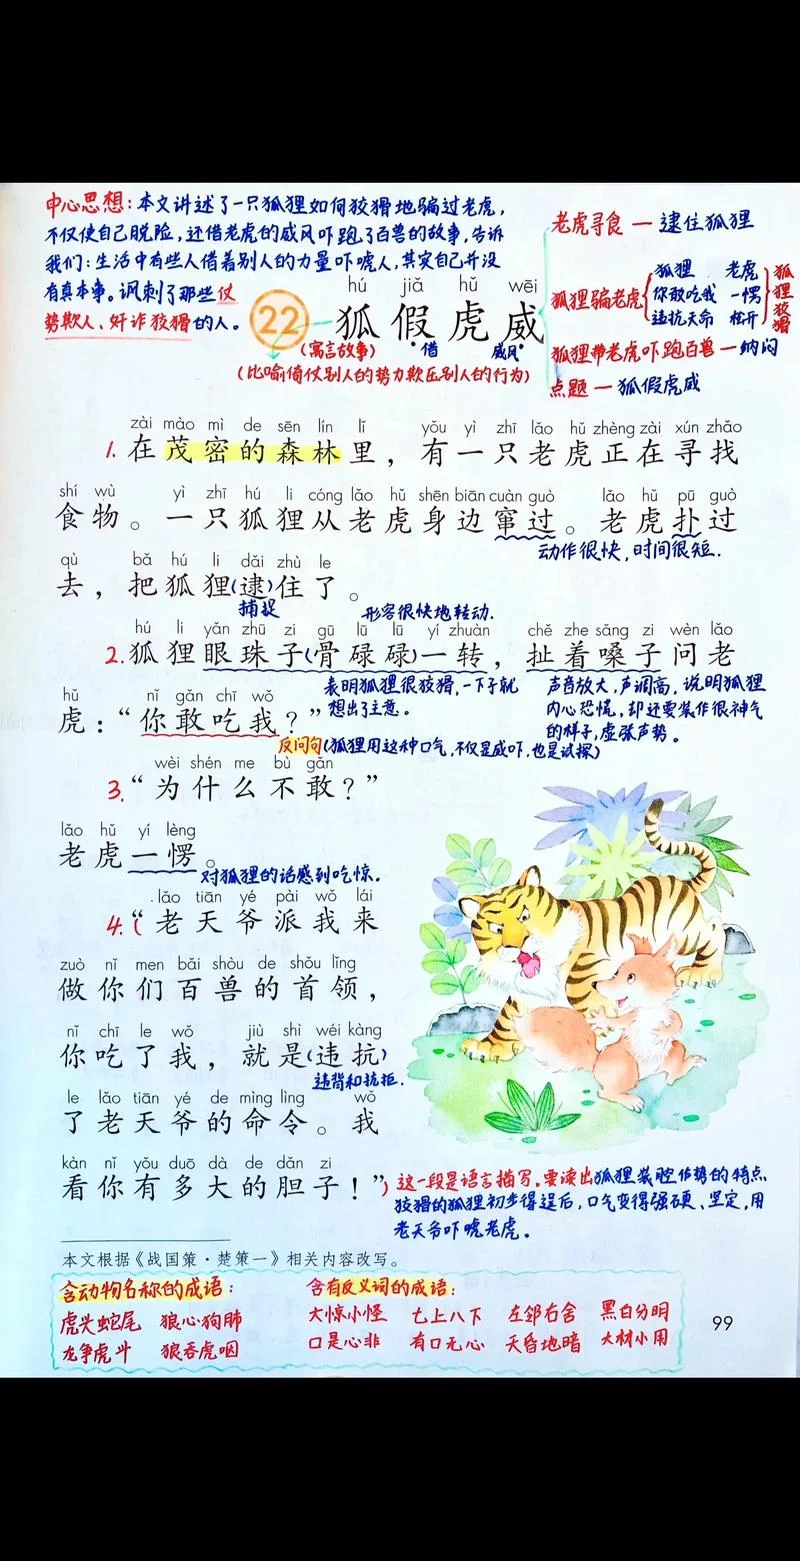 中心思想：本文讲述了一只狐狸如何狡猾地骗过老虎，
不仅使自己脱险，还借老虎的威风吓跑了百兽的故事，告诉
我们：生活中有些人借着别人的力量吓唬人，其实自己并没
有真本事。讽刺了那些仗
势欺人、奸诈狡猾的人。
老虎寻食一逮住狐狸
狐狸骗老虎
狐狸 老虎
你敢吃我 一愣
违抗天命 松开
狐狸狡猾
狐狸带老虎吓跑百兽一纳闷
点题一狐假虎威
hú jiǎ hǔ wēi
22 狐假虎威
(寓言故事) 借 威风
(比喻倚仗别人的势力欺压别人的行为)
zài mào mì de sēn lín lǐ yǒu yì zhī lǎo hǔ zhèng zài xún zhǎo
1.在茂密的森林里，有一只老虎正在寻找
shí wù yì zhī hú li cóng lǎo hǔ shēn biān cuàn guò lǎo hǔ pū guò
食物。一只狐狸从老虎身边窜过。老虎扑过
动作很快，时间很短.
qù bǎ hú li dǎi zhù le
去，把狐狸(逮)住了。
捕捉 形容很快地转动.
hú li yǎn zhū zi gū lū lū yí zhuàn chě zhe sǎng zi wèn lǎo
2.狐狸眼珠子(骨碌碌)一转，扯着嗓子问老
表明狐狸很狡猾，一下子就
想出了主意。
声音放大，声调高，说明狐狸
内心恐慌，却还要装作很神气
的样子，虚张声势。
hǔ nǐ gǎn chī wǒ
虎：“你敢吃我？”
反问句(狐狸用这种口气，不仅是威吓，也是试探)
wèi shén me bù gǎn
3.“为什么不敢？”
lǎo hǔ yí lèng
老虎一愣。
对狐狸的话感到吃惊.
lǎo tiān yé pài wǒ lái
4.(“老天爷派我来
zuò nǐ men bǎi shòu de shǒu lǐng
做你们百兽的首领，
nǐ chī le wǒ jiù shì wéi kàng
你吃了我，就是(违抗)
违背和抗拒.
le lǎo tiān yé de mìng lìng wǒ
了老天爷的命令。我
kàn nǐ yǒu duō dà de dǎn zi
看你有多大的胆子！”)
这一段是语言描写。要读出狐狸装腔作势的特点
狡猾的狐狸初步得逞后，口气变得强硬、坚定，用
老天爷吓唬老虎。
本文根据《战国策·楚策一》相关内容改写。
含动物名称的成语：
虎头蛇尾 狼心狗肺
龙争虎斗 狼吞虎咽
含有反义词的成语：
大惊小怪 七上八下 左邻右舍 黑白分明
口是心非 有口无心 天昏地暗 大材小用
99